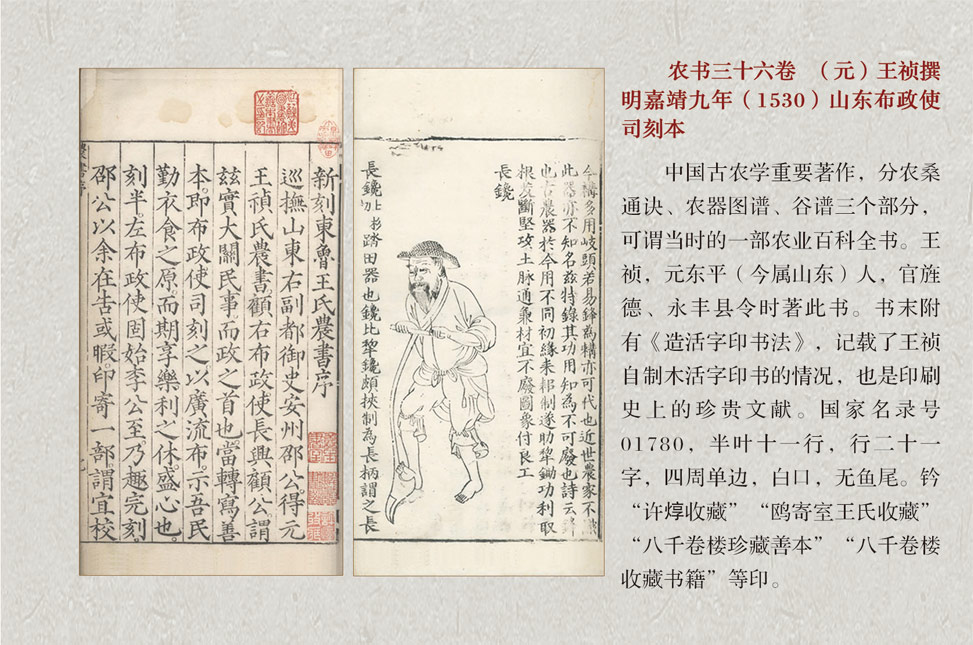 农书三十六卷 （元）王祯撰
明嘉靖九年（1530）山东布政使
司刻本
中国古农学重要著作，分农桑
通诀、农器图谱、谷谱三个部分，
可谓当时的一部农业百科全书。王
祯，元东平（今属山东）人，官旌
德、永丰县令时著此书。书末附
有《造活字印书法》，记载了王祯
自制木活字印书的情况，也是印刷
史上的珍贵文献。国家名录号
01780，半叶十一行，行二十一
字，四周单边，白口，无鱼尾。钤
“许焞收藏”“鸥寄室王氏收藏”
“八千卷楼珍藏善本”“八千卷楼
收藏书籍”等印。
今褠多用岐頭若易鋒為褠亦可代也近世農家不
此器亦不知名茲特錄其功用知為不可廢也詩云
也古農器於今用不同初緣耒耜制遂助犂鋤功利取
根𣦸斷堅攻土脉通兼材宜不廢圖象付良工
長鑱
長鑱 踏田器也鑱比犂鑱頗挾制為長柄謂之長
新刻東魯王氏農書序
巡撫山東右副都御史安州邵公得元
王禎氏農書顧右布政使長興顧公謂
茲實大關民事而政之首也當轉寫善
本即布政使司刻之以廣流布示吾民
勤衣食之原而期享樂利之休盛心也
刻半左布政使固始李公至乃趣完刻
邵公以余在告或暇印寄一部謂宜校